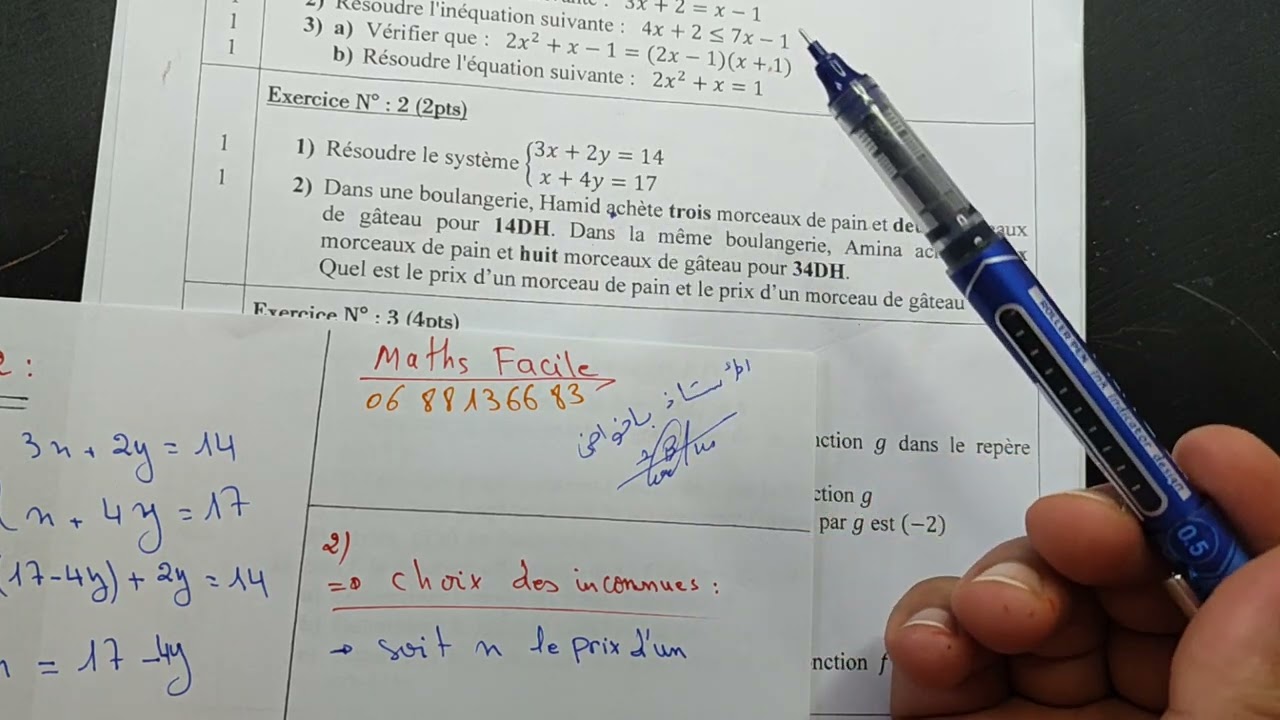 3x + 2 = x − 1
2) Résoudre l'inéquation suivante : 4x + 2 ≤ 7x − 1
1 3) a) Vérifier que : 2x² + x − 1 = (2x − 1)(x + 1)
1 b) Résoudre l'équation suivante : 2x² + x = 1
Exercice N° : 2 (2pts)
1 1) Résoudre le système { 3x + 2y = 14
x + 4y = 17
1 2) Dans une boulangerie, Hamid achète trois morceaux de pain et
de gâteau pour 14DH. Dans la même boulangerie, Amina
morceaux de pain et huit morceaux de gâteau pour 34DH.
Quel est le prix d'un morceau de pain et le prix d'un morceau de gâteau
Exercice N° : 3 (4pts)
Maths Facile
06 88136683
الأستاذ
3x + 2y = 14
x + 4y = 17
(17-4y) + 2y = 14
x = 17 - 4y
2)
=> choix des inconnues :
→ soit x le prix d'un
nction g dans le repère
ction g
par g est (−2)
nction f
ROLLER PEN ink indicator design
0.5